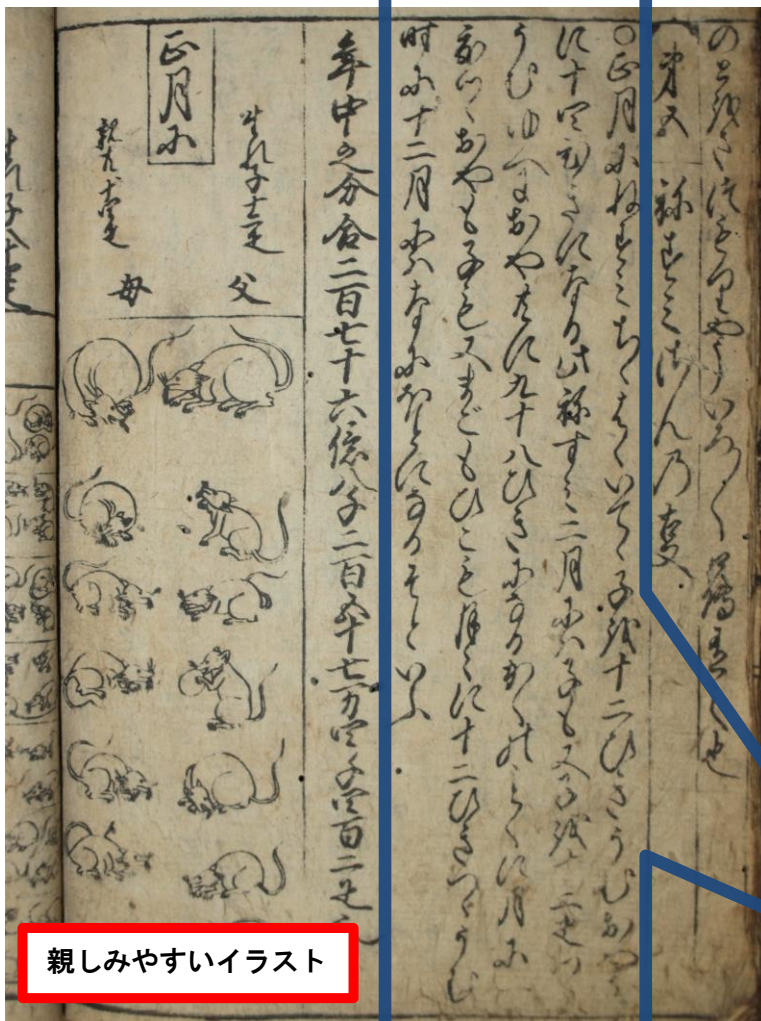 第五　祢ずミさんの事
〇正月にねずミちゝはゝいでゝ子を十二ひきうむおやとも
に十四ひきになる此祢ずミ二月にハ子も又子を十二疋づゝ
うむゆへにおや共に九十八ひきになるかくのごとくに月に
一度づゝおやも子も又まごもひこも月々に十二ひきづゝうむ
時に十二月にハなにほどになるぞといふ
年中之分合二百七十六億八千二百五十七万四千四百二疋也
生れ子十二疋
父
正月に
親共ニ十四疋
母
親しみやすいイラスト